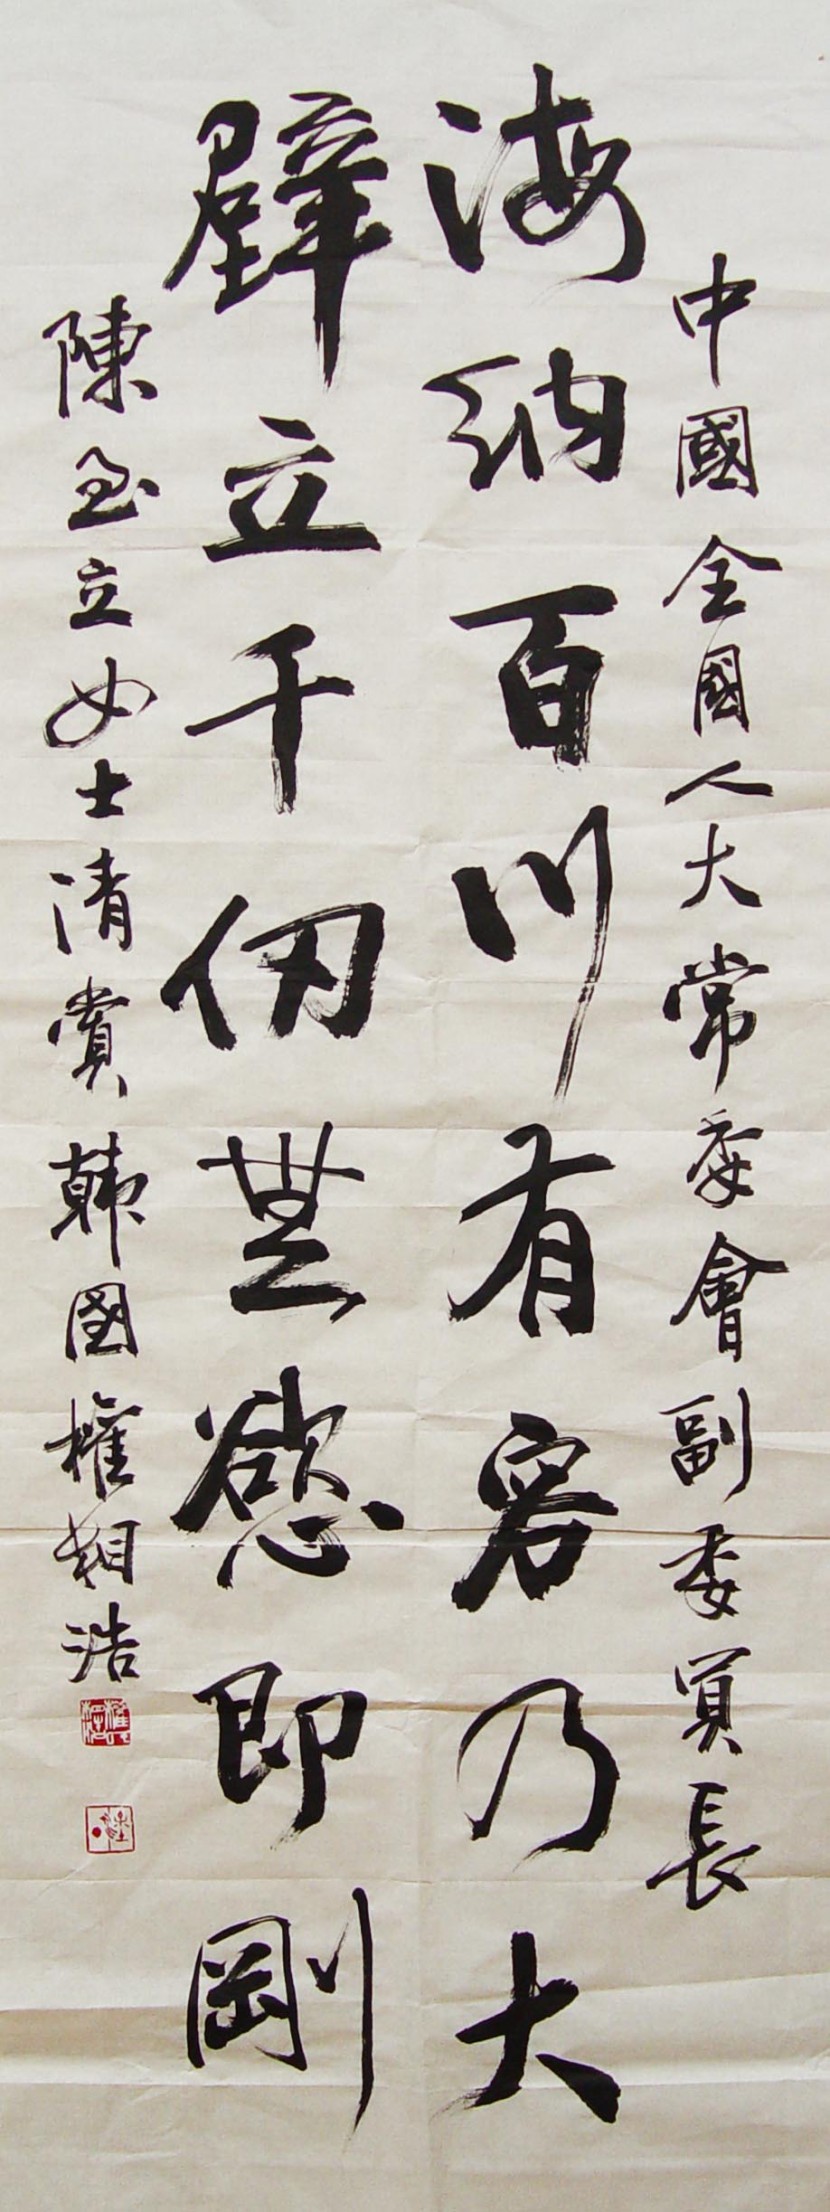 中國全國人大常委會副委員長
海納百川有容乃大
壁立千仞無慾即剛
陳至立女士清賞韓國權相浩